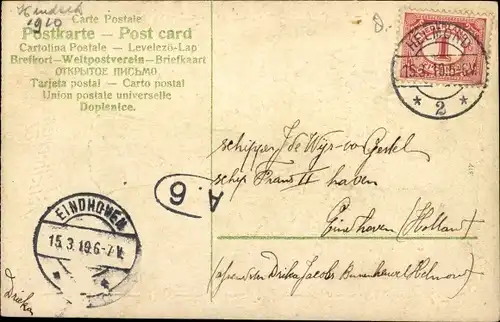 1910
Carte Postale
Postkarte – Post card
Cartolina Postale – Levelező-Lap
Brefkort – Weltpostverein – Briefkaart
ОТКРЫТОЕ ПИСЬМО
Tarjeta postal – Carto postal
Union postale universelle
Dopisnice.
HELMOND
15.3.10.5-6V.
* 2 *
1
schipper J de Wijs-van Gestel
schip Frans II haven
Eindhoven (Holland)
(afzendster Drika Jacobs Helmond)
A.6
EINDHOVEN
15.3.10 6-7V.
Drika